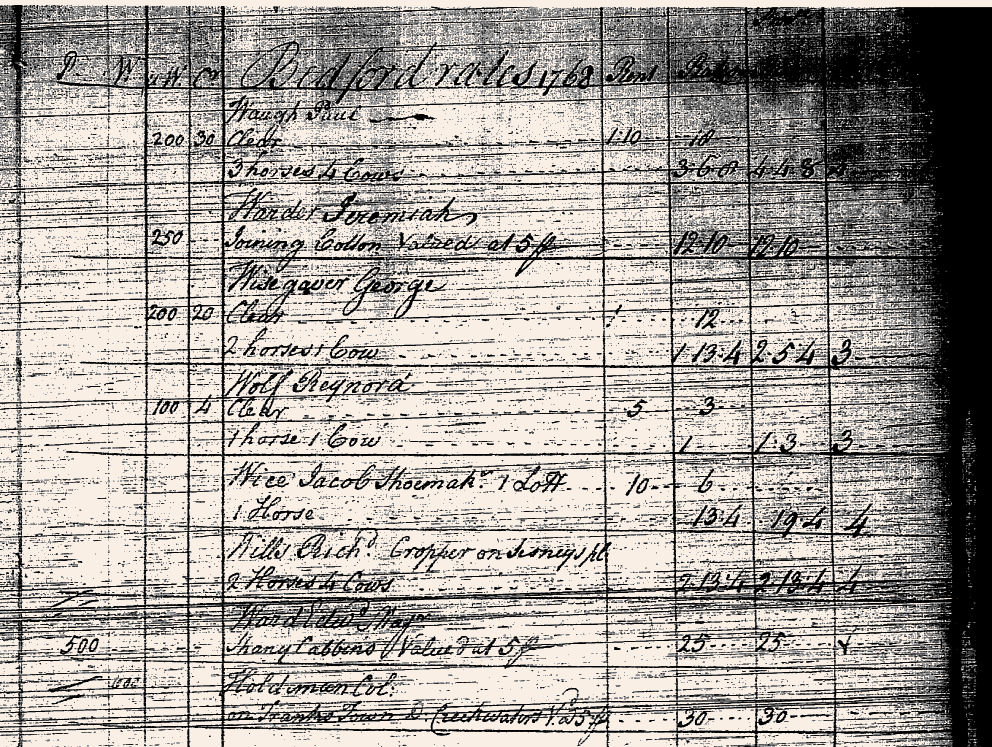 D W W Cr Bedford rates 1768 Rent
Waugh Paul
200 30 Clear 1.10 18
3 horses 4 Cows 3.6.8 4.4.8
Warder Jeremiah
250 Joining Colson Valued at 5 12.10 12.10
Wisegaver George
200 20 Clear 1 12
2 horses 1 Cow 1.13.4 2.5.4 3
Wolf Reynord
100 4 Clear 5 3
1 horse 1 Cow 1 1.3 3
Wice Jacob Shoemakr. 1 Lott 10 6
1 Horse 13.4 19.4 4
Richd Cropper on pl
2 Horses 4 Cows 2.13.4 2.13.4 4
Ward Edwd Majr
500 Shany Cabbins Valued at 5 25 25
Holdiman Col.
on Franks Town 30 30